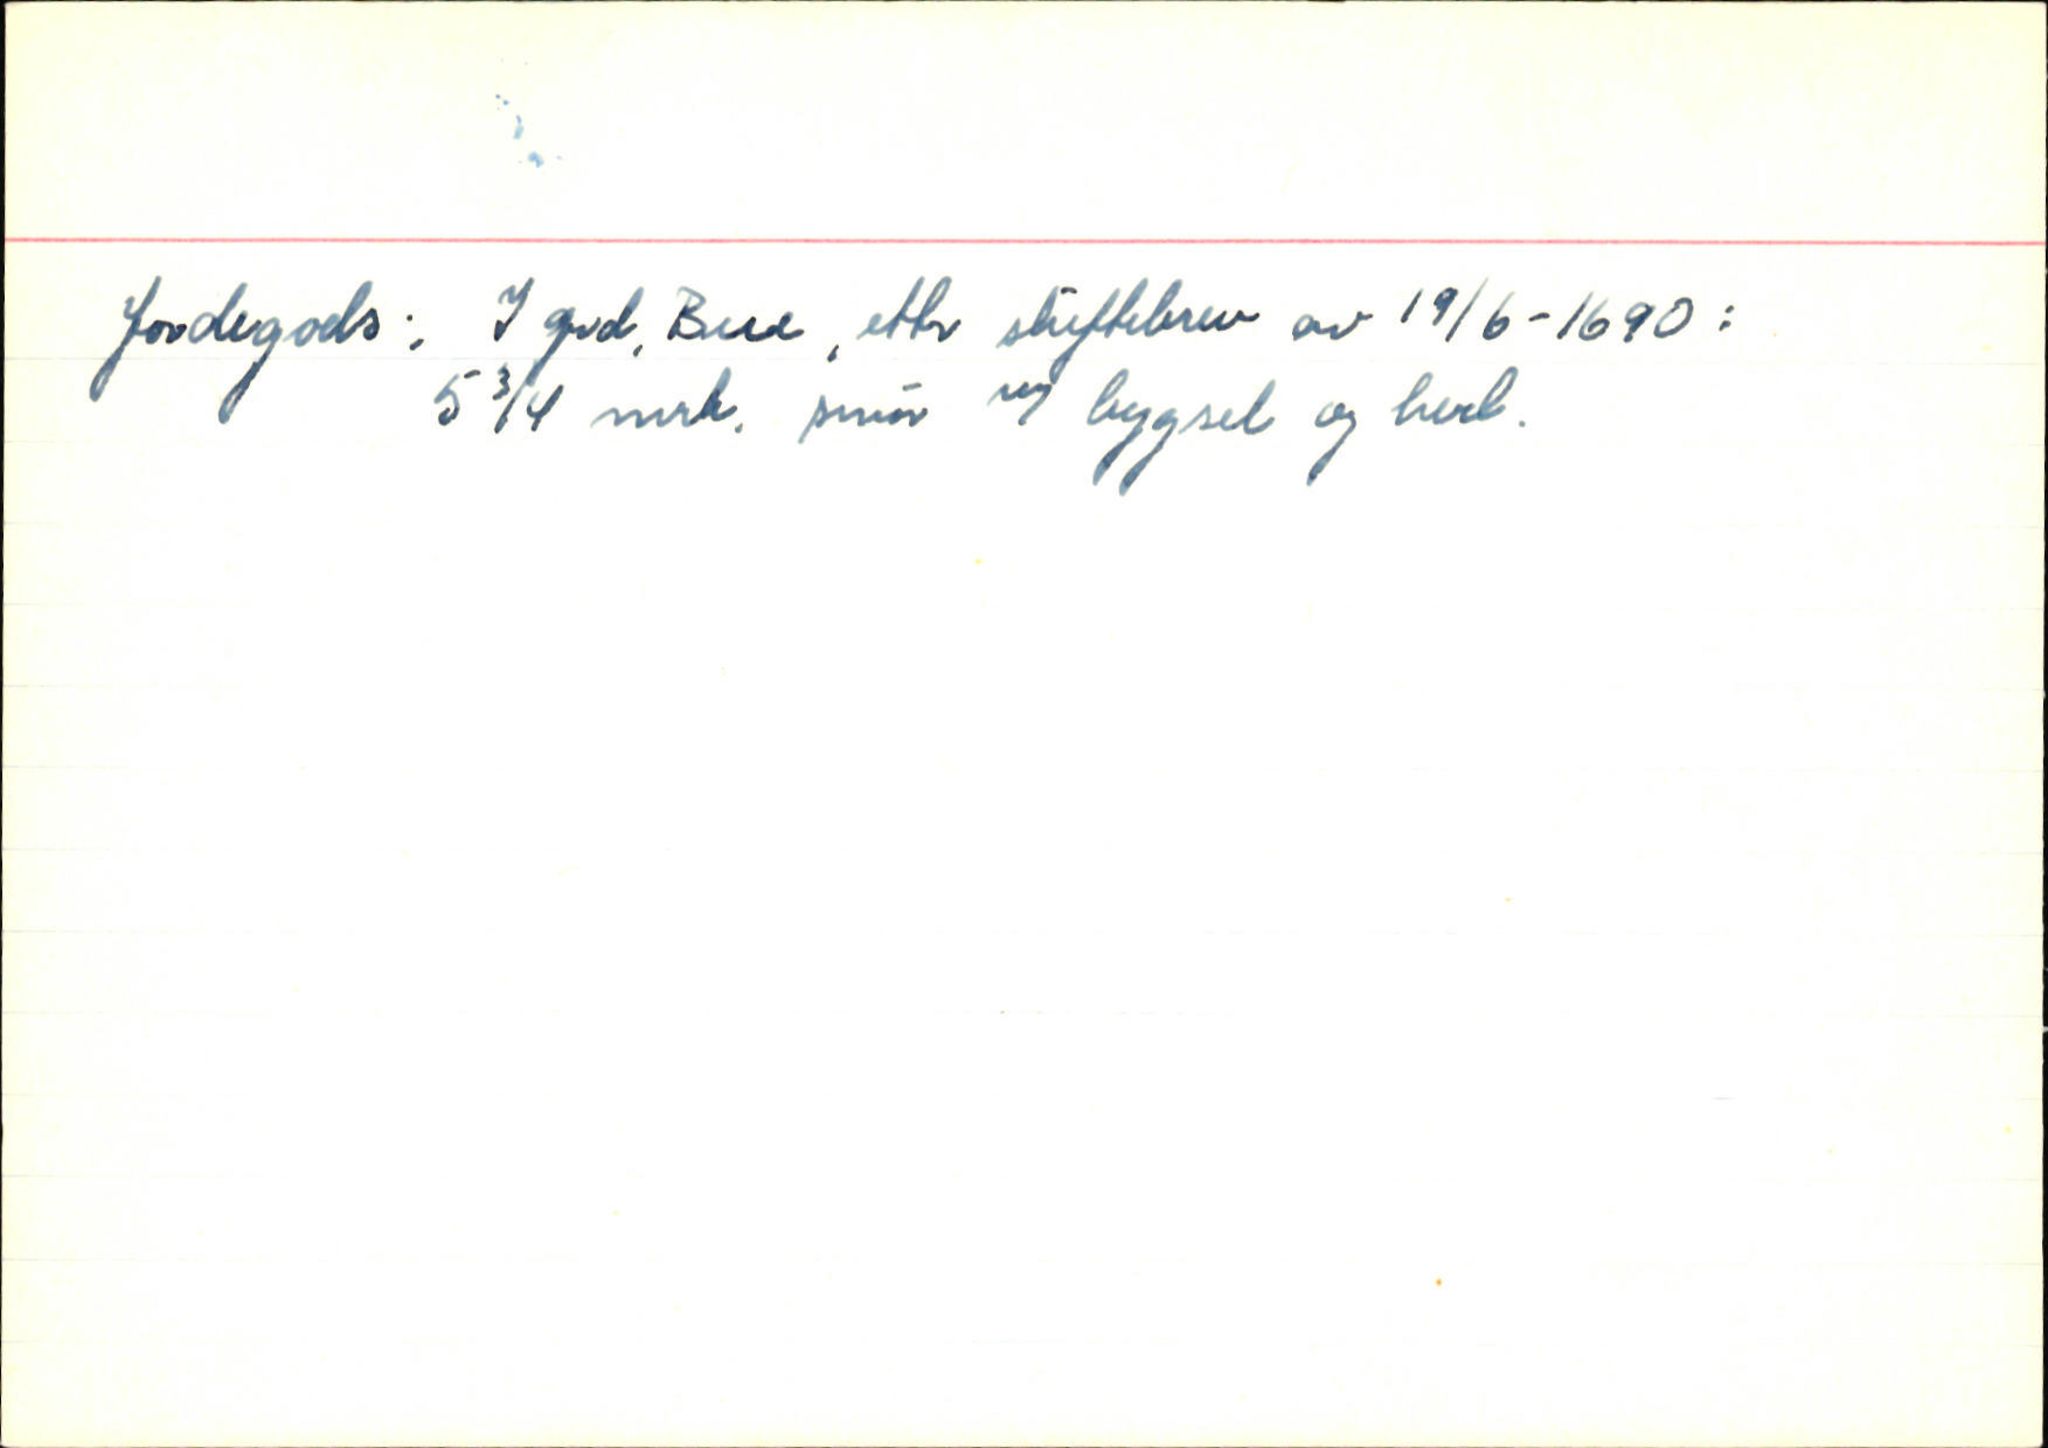 Jordegods: I grd. Bue, ettr skiftebrev av 19/6-1690:
5 3/4 mrk. smör m/ bygsel og herl.